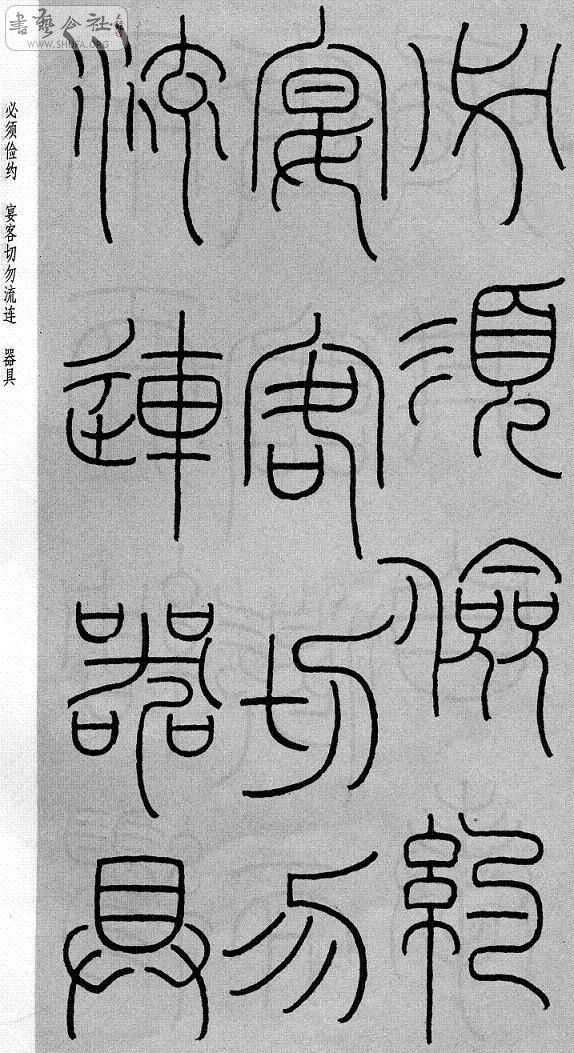 必須儉約
宴客切勿
流連器具
必须俭约 宴客切勿流连 器具
書藝公社
WWW.SHUFA.ORG